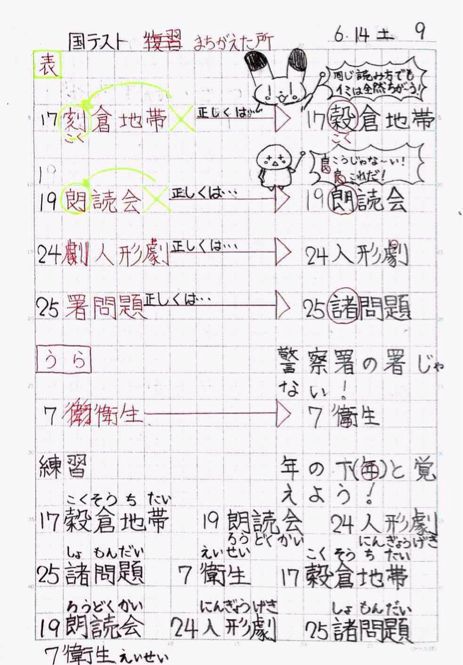 国テスト 復習 まちがえた所 6.14 土 9
表
同じ読み方でも
イミは全然ちがう!!
17 刻倉地帯 正しくは… 17 穀倉地帯
こく こく
こうじゃな〜い!
これだ!
19 朗読会 正しくは… 19 朗読会
24 劇人形劇 正しくは… 24 人形劇
25 署問題 正しくは… 25 諸問題
うら
警察署の署じゃ
ない!
7 衛生 7 衛生
練習
年の下(㐄)と覚
えよう!
こくそうちたい
17 穀倉地帯 19 朗読会 24 人形劇
ろうどくかい にんぎょうげき
しょもんだい えいせい こくそうちたい
25 諸問題 7 衛生 17 穀倉地帯
ろうどくかい にんぎょうげき しょもんだい
19 朗読会 24 人形劇 25 諸問題
7 衛生 えいせい